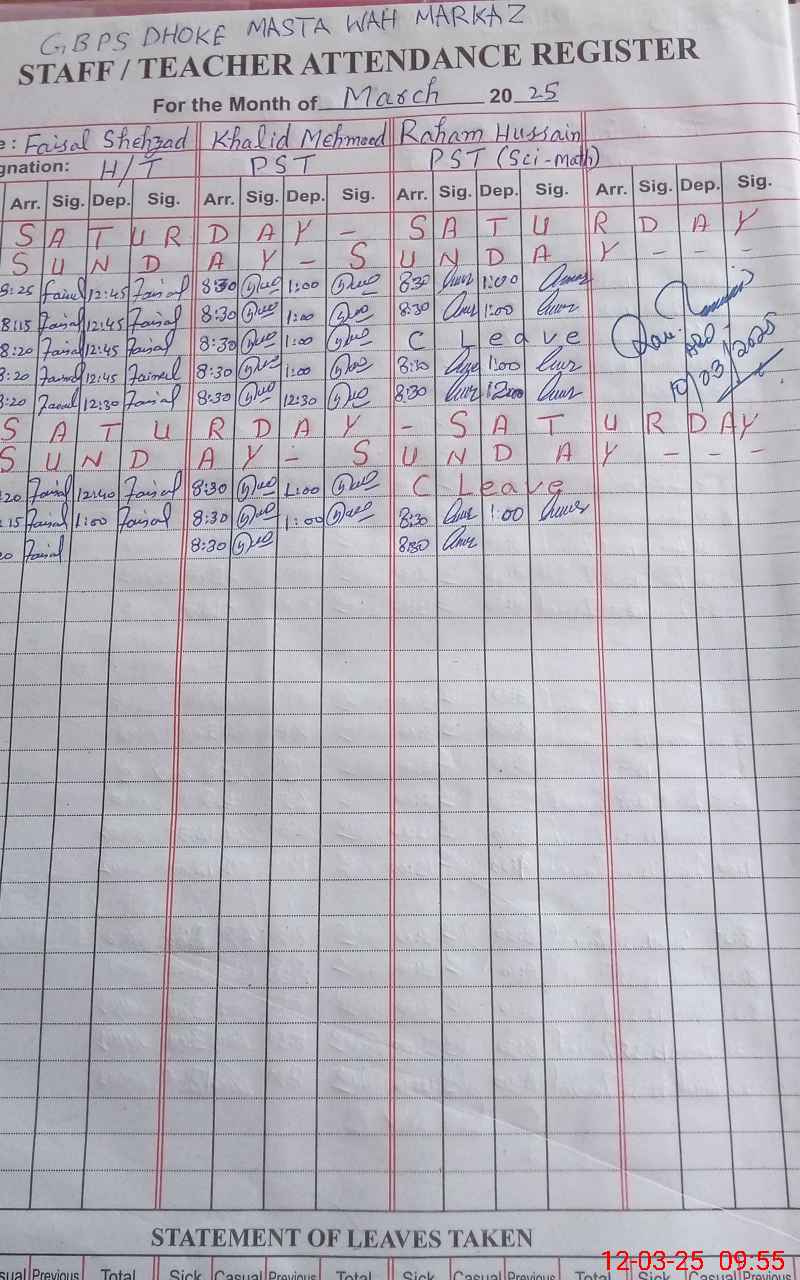 GBPS DHOKE MASTA WAH MARKAZ
STAFF / TEACHER ATTENDANCE REGISTER
For the Month of March 2025
e: Faisal Shehzad Khalid Mehmood Raham Hussain
gnation: H/T PST PST (Sci-math)
Arr. Sig. Dep. Sig. Arr. Sig. Dep. Sig. Arr. Sig. Dep. Sig. Arr. Sig. Dep. Sig.
S A T U R D A Y - S A T U R D A Y
S U N D A Y - S U N D A Y - - -
8:25 Faisal 12:45 Faisal 8:30 1:00 8:30 1:00
8:15 Faisal 12:45 Faisal 8:30 1:00 8:30 1:00
8:20 Faisal 12:45 Faisal 8:30 1:00 C Leave
:20 Faisal 12:45 Faisal 8:30 1:00 8:30 1:00
:20 Faisal 12:30 Faisal 8:30 12:30 8:30
10/03/2025
S A T U R D A Y - S A T U R D A Y
S U N D A Y - S U N D A Y - - -
20 Faisal 12:40 Faisal 8:30 1:00 C Leave
15 Faisal 1:00 Faisal 8:30 1:00 8:30 1:00
20 Faisal 8:30 8:30
STATEMENT OF LEAVES TAKEN
sual Previous Total Sick Casual Previous Total Sick Casual Previous Total Sick Casual Previous Total
12-03-25 09:55